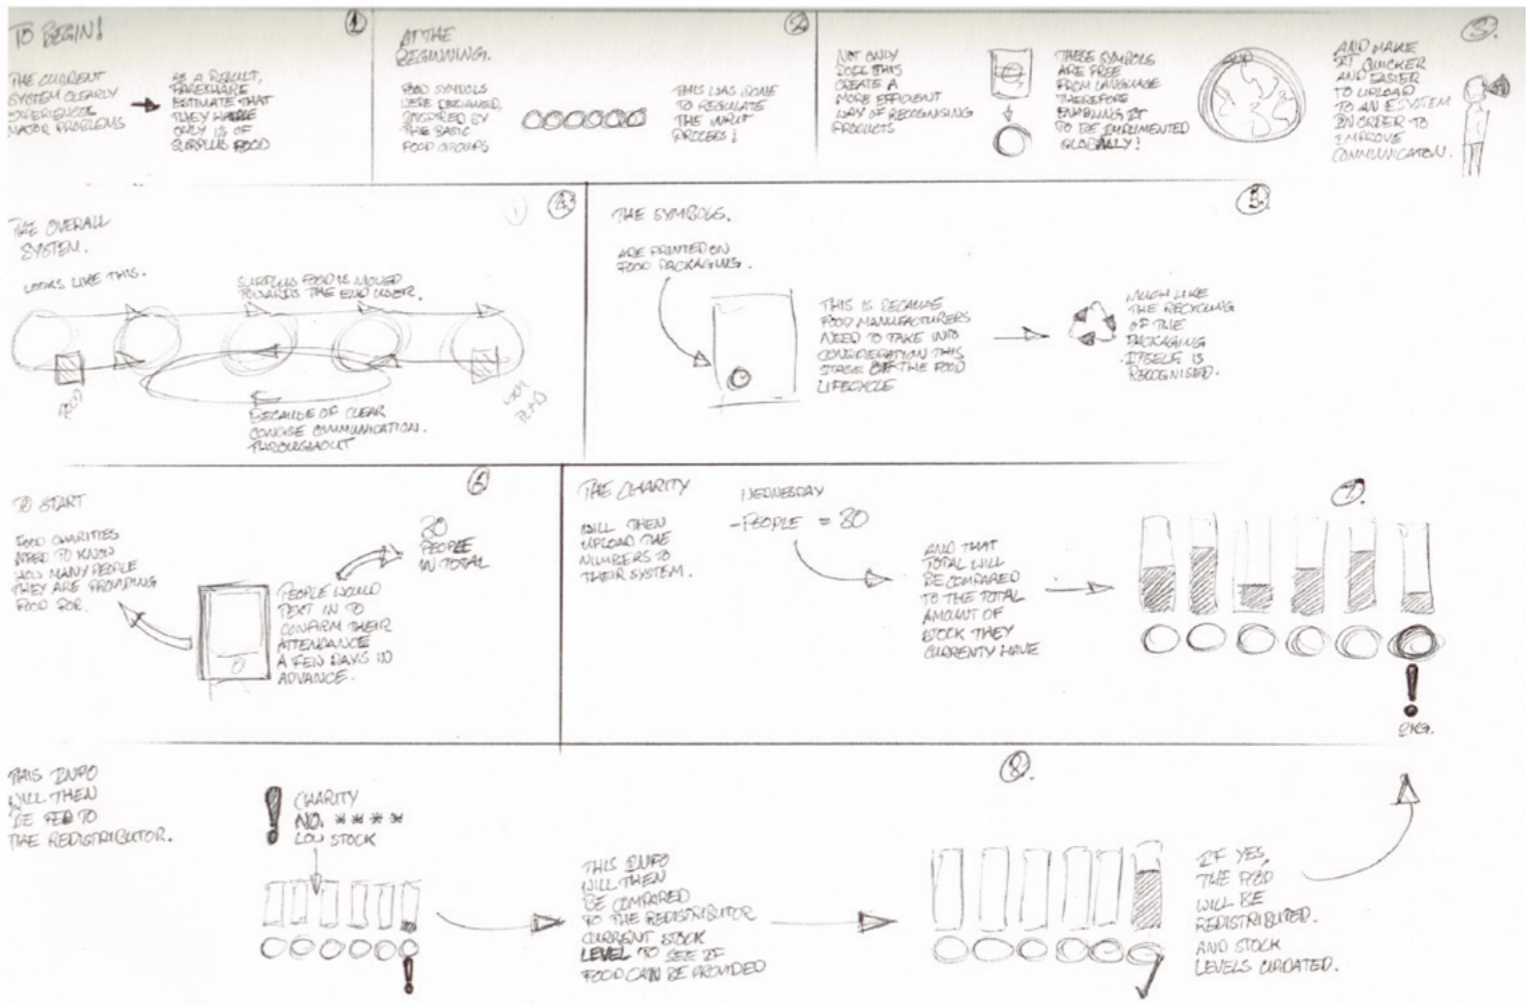 TO BEGIN!
1
THE CURRENT
SYSTEM CLEARLY
EXPERIENCES
MAJOR PROBLEMS
AS A RESULT,
FARESHARE
ESTIMATE THAT
THEY HANDLE
ONLY 1% OF
SURPLUS FOOD
AT THE
BEGINNING.
2
FOOD SYMBOLS
WERE DESIGNED,
INSPIRED BY
THE BASIC
FOOD GROUPS
THIS WAS DONE
TO REGULATE
THE INPUT
PROCESS!
3.
NOT ONLY
DOES THIS
CREATE A
MORE EFFICIENT
WAY OF RECOGNISING
PRODUCTS
THESE SYMBOLS
ARE FREE
FROM LANGUAGE
THEREFORE
ENABLING IT
TO BE IMPLIMENTED
GLOBALLY!
AND MAKE
IT QUICKER
AND EASIER
TO UPLOAD
TO AN ESYSTEM
IN ORDER TO
IMPROVE
COMMUNICATION.
THE OVERALL
SYSTEM.
4.
LOOKS LIKE THIS.
SURPLUS FOOD IS MOVED
TOWARDS THE END USER.
FOOD
BECAUSE OF CLEAR
CONCISE COMMUNICATION.
THROUGHOUT
THE SYMBOLS.
5.
ARE PRINTED ON
FOOD PACKAGING.
THIS IS BECAUSE
FOOD MANUFACTURERS
NEED TO TAKE INTO
CONSIDERATION THIS
STAGE OF THE FOOD
LIFECYCLE
MUCH LIKE
THE RECYCLING
OF THE
PACKAGING
ITSELF IS
RECOGNISED.
TO START
6
FOOD CHARITIES
NEED TO KNOW
HOW MANY PEOPLE
THEY ARE PROVIDING
FOOD FOR.
PEOPLE WOULD
TEXT IN TO
CONFIRM THEIR
ATTENDANCE
A FEW DAYS IN
ADVANCE.
30
PEOPLE
IN TOTAL
THE CHARITY
7.
WILL THEN
UPLOAD THE
NUMBERS TO
THEIR SYSTEM.
WEDNESDAY
- PEOPLE = 30
AND THAT
TOTAL WILL
BE COMPARED
TO THE TOTAL
AMOUNT OF
STOCK THEY
CURRENTY HAVE
!
2KG.
THIS INFO
WILL THEN
BE FED TO
THE REDISTRIBUTOR.
8.
! CHARITY
NO. * * * *
LOW STOCK
!
THIS INFO
WILL THEN
BE COMPARED
TO THE REDISTRIBUTOR
CURRENT STOCK
LEVEL TO SEE IF
FOOD CAN BE PROVIDED
IF YES,
THE FOOD
WILL BE
REDISTRIBUTED.
AND STOCK
LEVELS UPDATED.